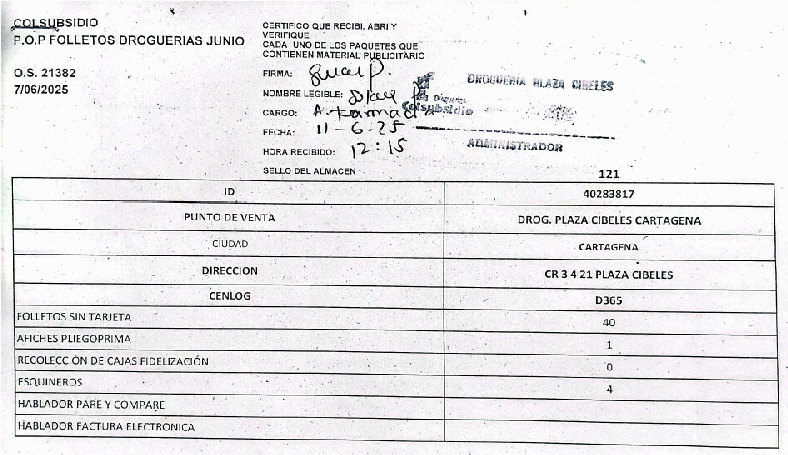 COLSUBSIDIO
P.O.P FOLLETOS DROGUERIAS JUNIO
O.S. 21382
7/06/2025
CERTIFICO QUE RECIBI, ABRI Y
VERIFIQUE
CADA UNO DE LOS PAQUETES QUE
CONTIENEN MATERIAL PUBLICITARIO
FIRMA:
NOMBRE LEGIBLE:
CARGO: A. Farmacia
FECHA: 11-6-25
HORA RECIBIDO: 12:15
SELLO DEL ALMACEN
DROGUERIA PLAZA CIBELES
Colsubsidio
ADMINISTRADOR
121
ID 40283817
PUNTO DE VENTA DROG. PLAZA CIBELES CARTAGENA
CIUDAD CARTAGENA
DIRECCION CR 3 4 21 PLAZA CIBELES
CENLOG D365
FOLLETOS SIN TARJETA 40
AFICHES PLIEGOPRIMA 1
RECOLECCIÓN DE CAJAS FIDELIZACIÓN 0
ESQUINEROS 4
HABLADOR PARE Y COMPARE
HABLADOR FACTURA ELECTRONICA